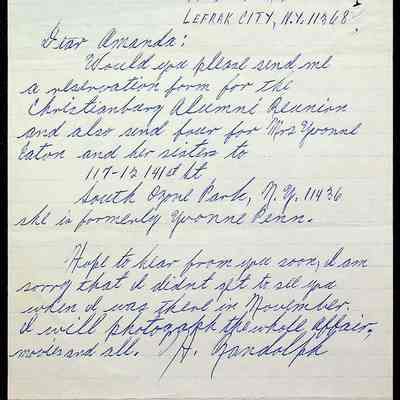 LEFRAK CITY, N.Y. 11368
Dear Amanda:
Would you please send me
a reservation form for the
Christianburg Alumni Reunion
and also send four for Mrs Yvonne
Eaton and her sisters to
117-12 141st St
South Ozone Park, N.Y. 11436
she is formerly Yvonne Penn.
Hope to hear from you soon, I am
sorry that I didn't get to see you
when I was there in November.
I will photograph the whole affair,
movies and all. H. Randolph